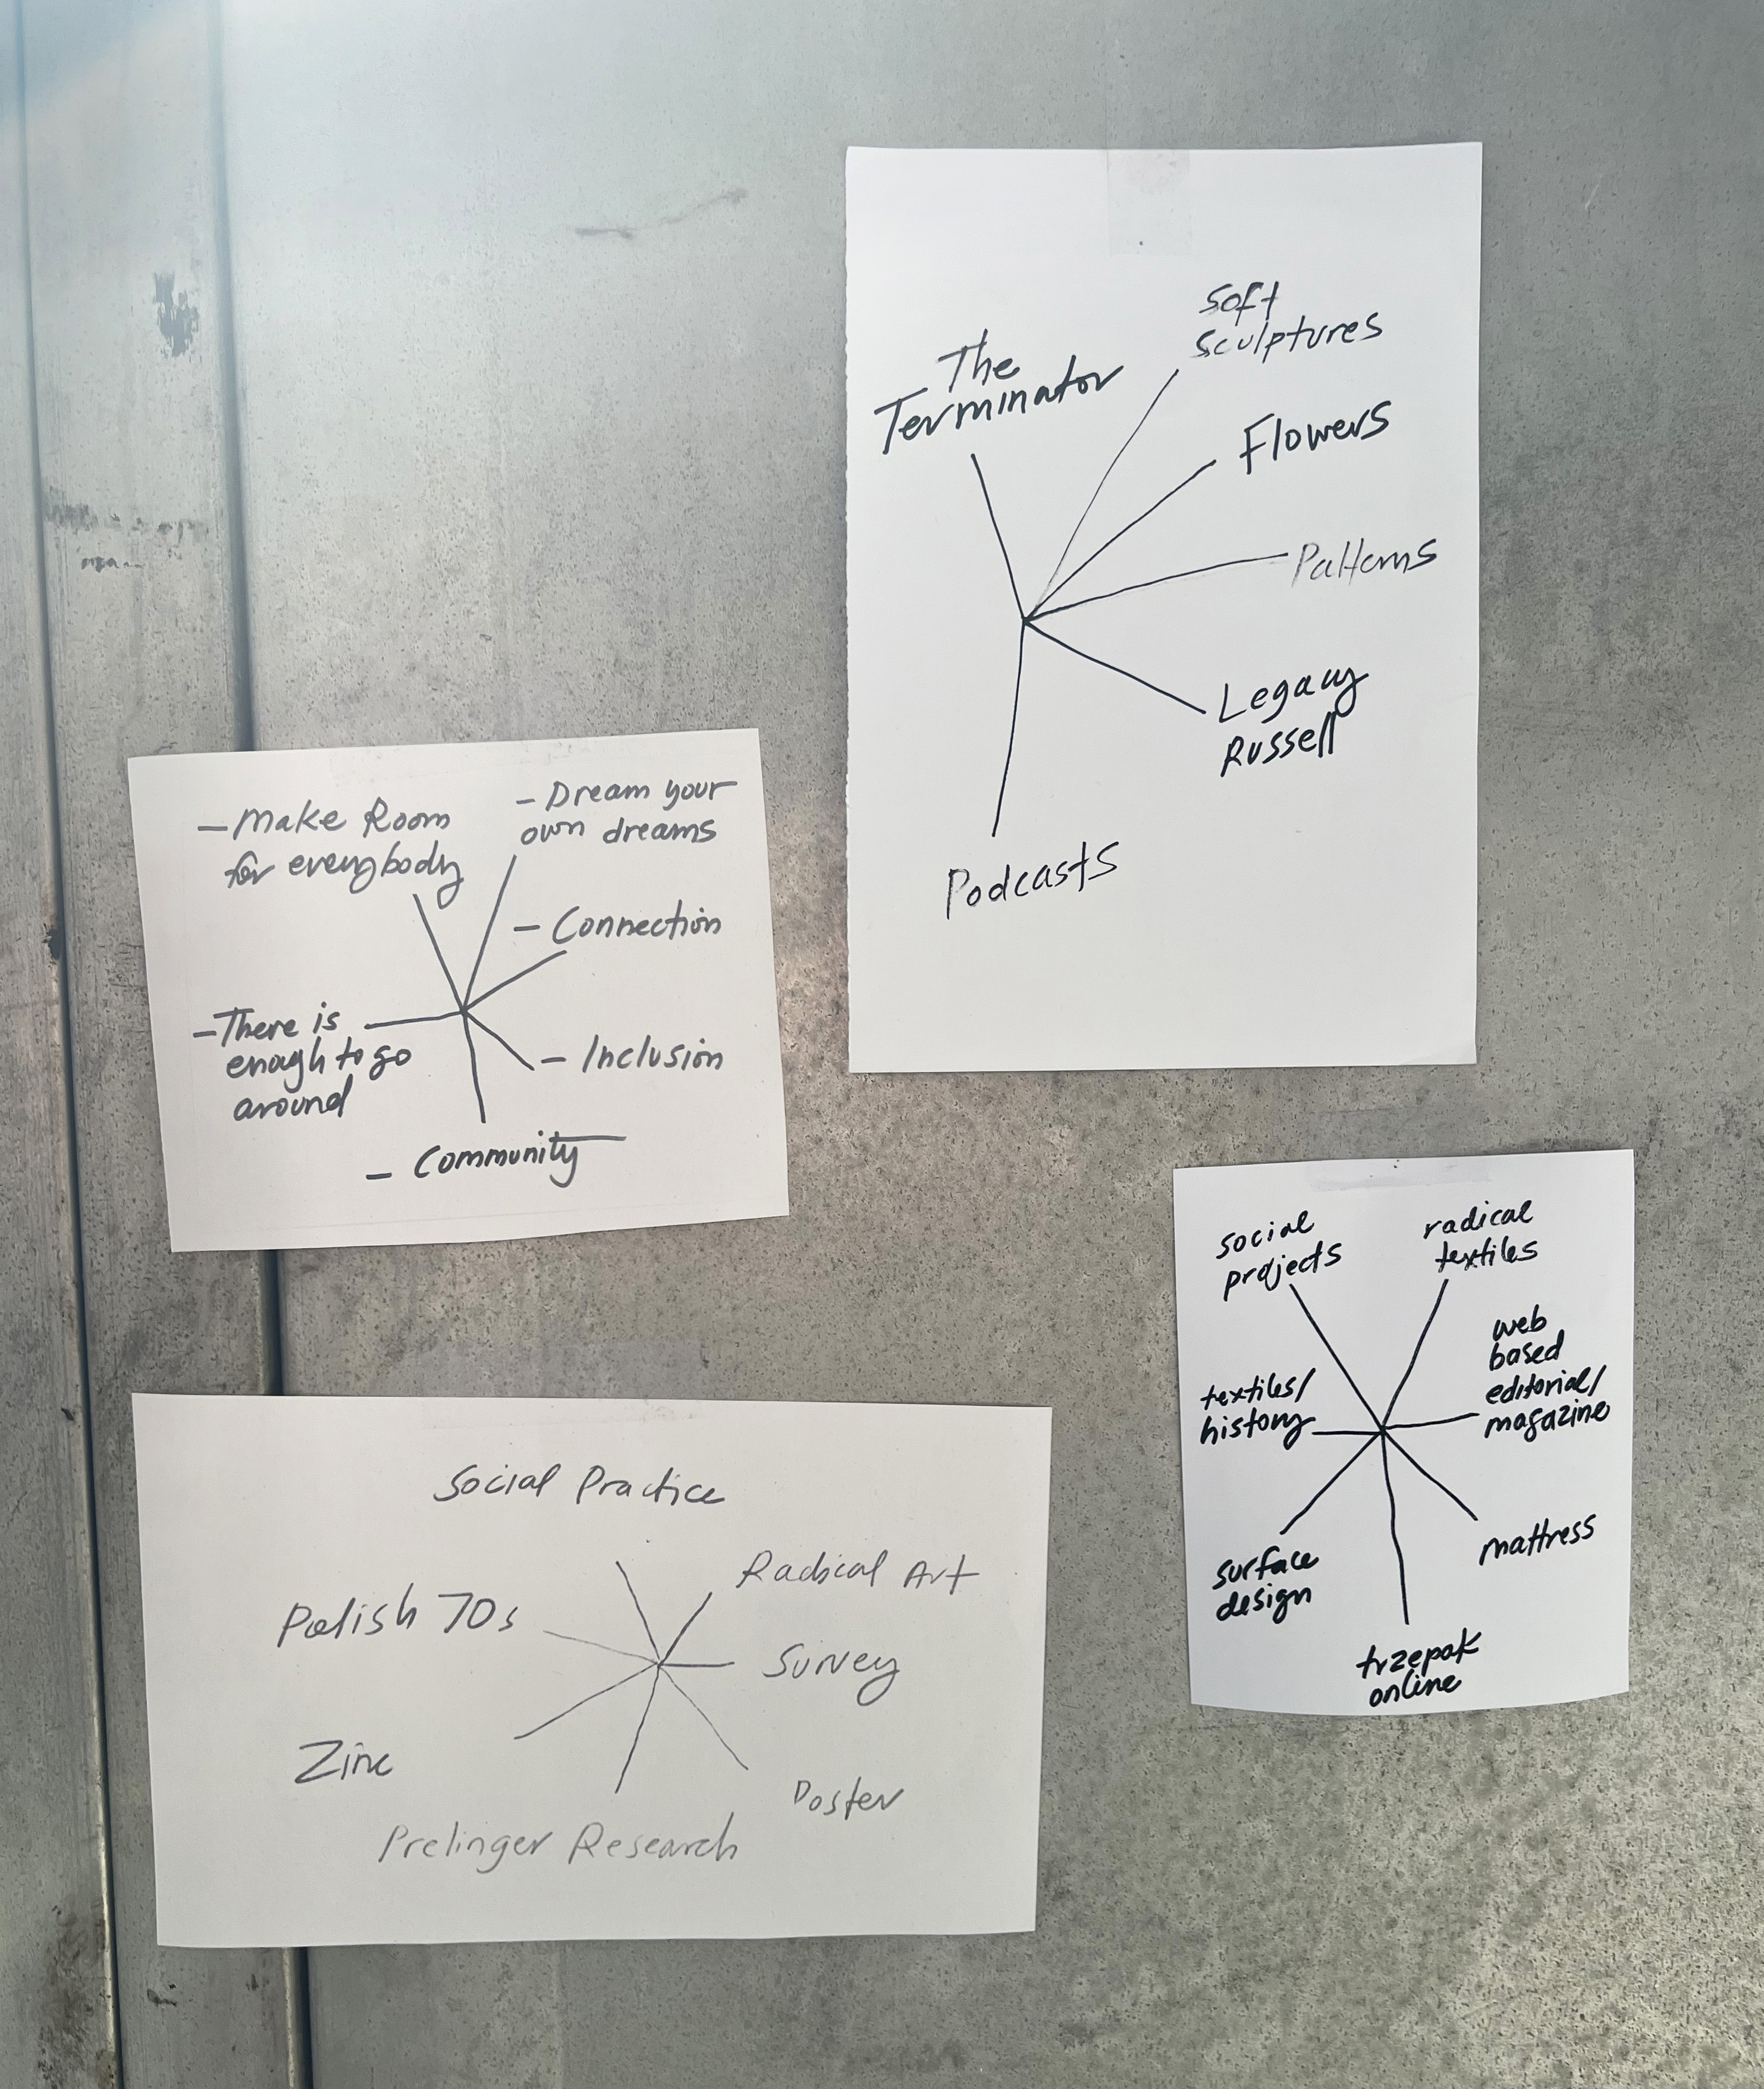 The
Terminator
Soft
Sculptures
Flowers
Patterns
Legacy
Russell
Podcasts
- Make Room
for everybody
- Dream your
own dreams
- Connection
- There is
enough to go
around
- Inclusion
- Community
social
projects
radical
textiles
web
based
editorial/
magazine
textiles/
history
mattress
surface
design
trzepak
online
Social Practice
Radical Art
Polish 70s
Survey
Zine
Poster
Prelinger Research